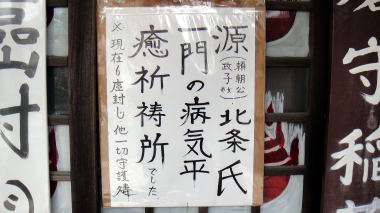 源(頼朝公政子教)北条氏
一門の病気平
癒祈祷所でした。
※現在も虫封じ、他一切守護祷
守稲